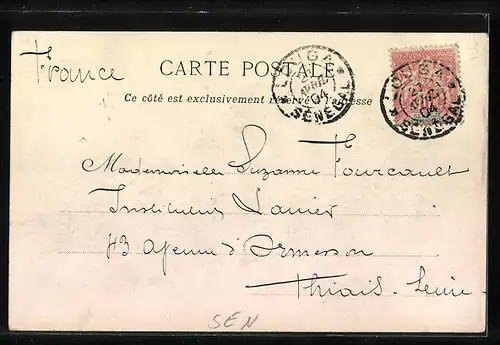 France
CARTE POSTALE
Ce côté est exclusivement réservé à l'adresse
LOUGA
AVRIL
04
SÉNÉGAL
LOUGA
AVRIL
04
SÉNÉGAL
Mademoiselle Suzanne Fourcault
Institution Lanier
43 Avenue d'Ormesson
Thiais. Seine.
SEN